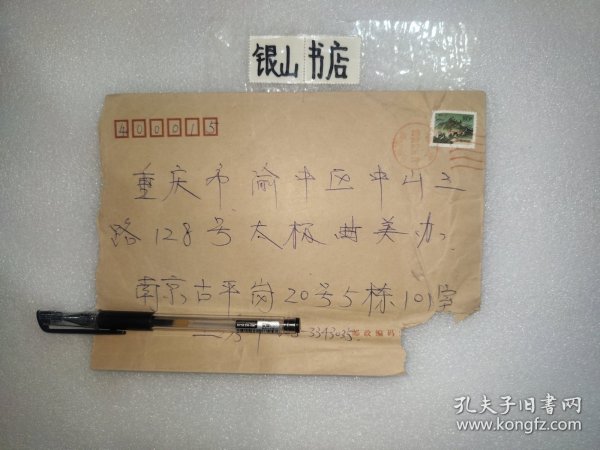 银山书店
400015
重庆市渝中区中山三
路128号太极曲美办
南京古平岗20号5栋101室
3343035
邮政编码
孔夫子旧书网
www.kongfz.com